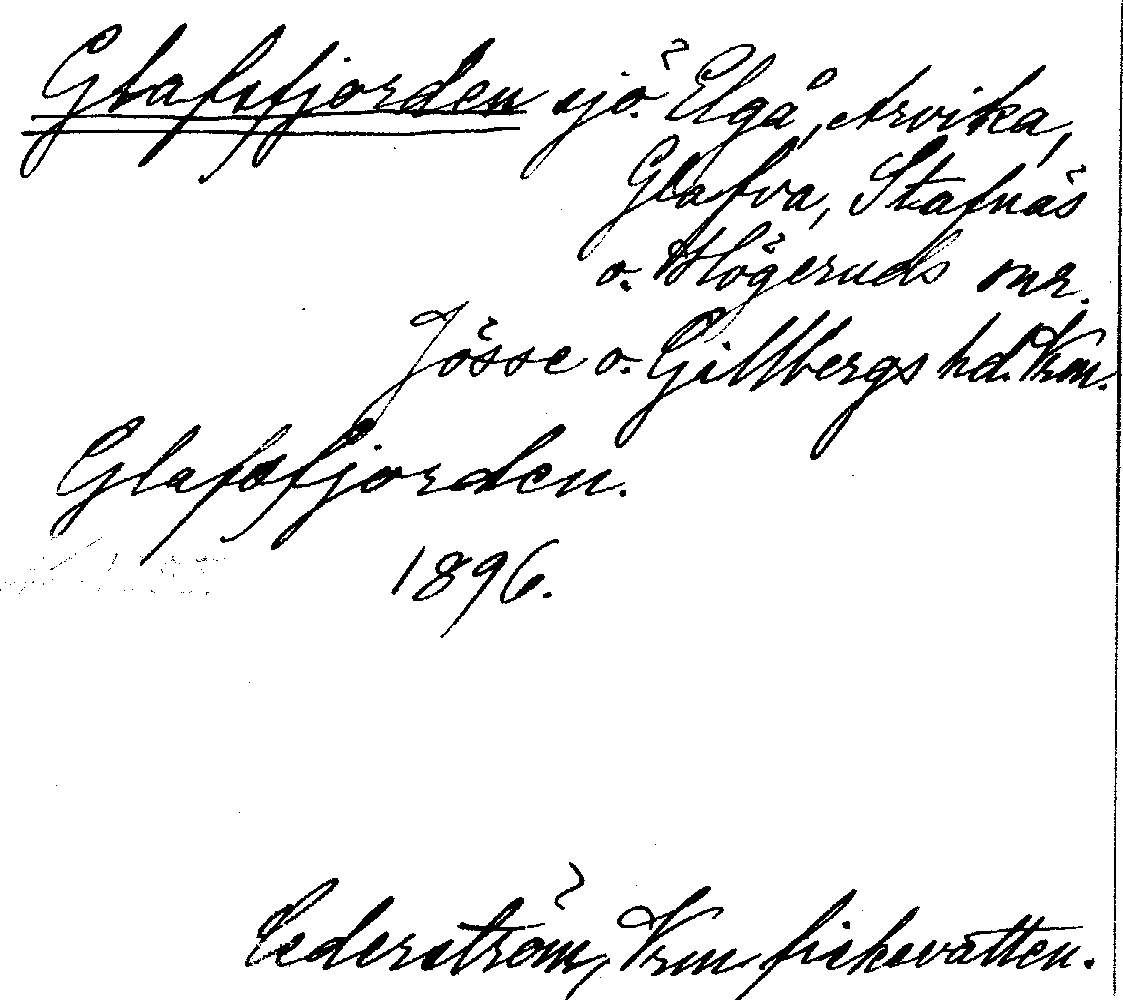 Glafsfjorden sjö. Elgå, Arvika,
Glafva, Stafnäs
o. Högeruds snr.
Jösse o. Gillbergs hd. Vrm.
Glafsfjorden.
1896.
Cederström, Vrm fiskevatten.